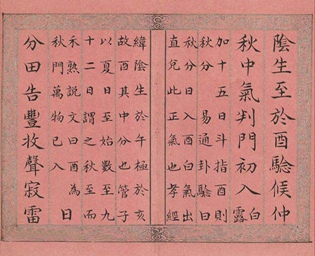 陰生至於酉驗候仲
秋中氣判門初入白露
加十五日斗指酉則
秋分 易通卦驗曰
秋分日入酉白氣出
直兌此正氣也孝經
緯陰生於午極於亥
故酉其中分也管子
以夏日至始數至九
十二日謂之秋至而
禾熟說文曰酉為
秋門萬物已入
日
分田告豐收聲寂雷